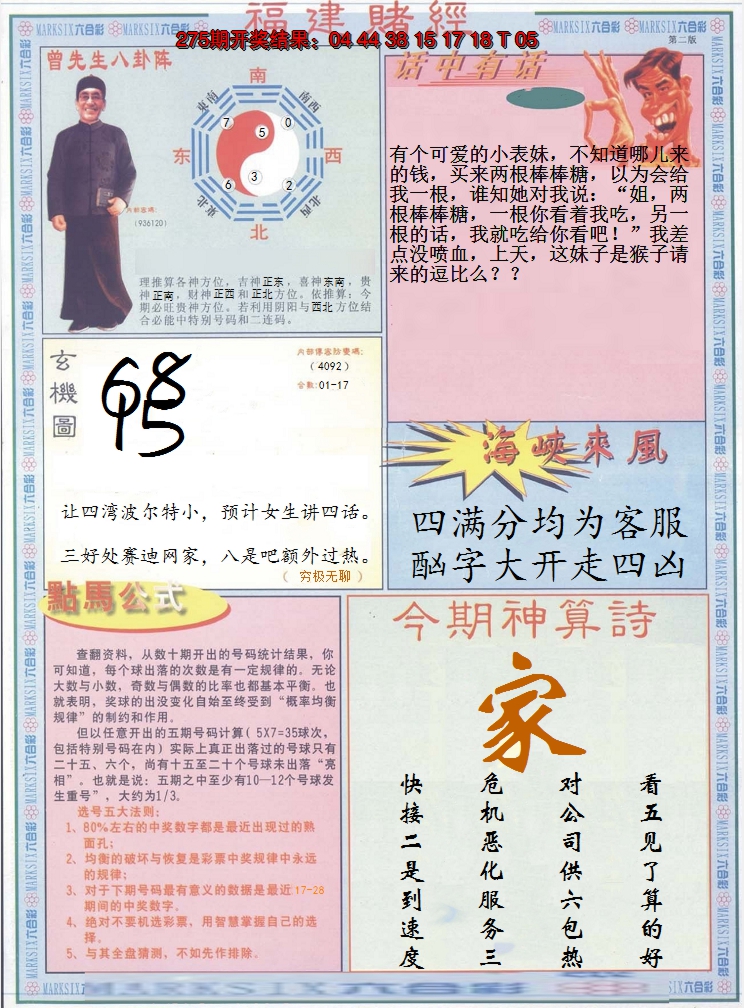 福建賭經
275期开奖结果：04 44 38 15 17 18 T 05
MARKSIX六合彩
第二版
曾先生八卦阵
南
东南
西南
7
5
0
东
西
6
3
2
东北
西北
北
内部密碼:
(936120)
理推算各神方位，吉神正东，喜神东南，贵
神正南，财神正西和正北方位。依推算：今
期必旺贵神方位。若利用阴阳与西北方位结
合必能中特别号码和二连码。
话中有话
有个可爱的小表妹，不知道哪儿来
的钱，买来两根棒棒糖，以为会给
我一根，谁知她对我说：“姐，两
根棒棒糖，一根你看着我吃，另一
根的话，我就吃给你看吧！”我差
点没喷血，上天，这妹子是猴子请
来的逗比么？？
玄機圖
内部傳密防變碼:
(4092)
合数:01-17
让四湾波尔特小，预计女生讲四话。
三好处赛迪网家，八是吧额外过热。
（ 穷极无聊 ）
海峽來風
四满分均为客服
酗字大开走四凶
點馬公式
查翻资料，从数十期开出的号码统计结果，你
可知道，每个球出落的次数是有一定规律的。无论
大数与小数，奇数与偶数的比率也都基本平衡。也
就表明，奖球的出没变化自始至终受到“概率均衡
规律”的制约和作用。
但以任意开出的五期号码计算( 5X7=35球次，
包括特别号码在内) 实际上真正出落过的号球只有
二十五、六个，尚有十五至二十个号球未出落“亮
相”。也就是说：五期之中至少有10—12个号球发
生重号”，大约为1/3。
选号五大法则:
1、80%左右的中奖数字都是最近出现过的熟
面孔;
2、均衡的破坏与恢复是彩票中奖规律中永远
的规律;
3、对于下期号码最有意义的数据是最近17-28
期间的中奖数字。
4、绝对不要机选彩票，用智慧掌握自己的选
择。
5、与其全盘猜测，不如先作排除。
今期神算詩
家
看五见了算的好
对公司供六包热
危机恶化服务三
快接二是到速度